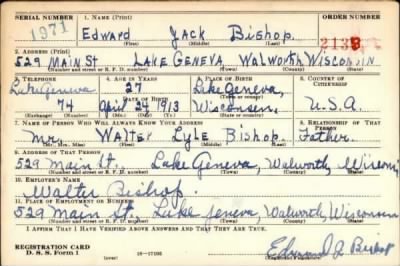 SERIAL NUMBER 1. NAME (Print) ORDER NUMBER
1971 Edward Jack Bishop 2138
(First) (Middle) (Last)
2. ADDRESS (Print)
529 MAIN St LAKE GENEVA WALWORTH WISCONSIN
(Number and street or R. F. D. number) (Town) (County) (State)
3. TELEPHONE 4. AGE IN YEARS 5. PLACE OF BIRTH 6. COUNTRY OF CITIZENSHIP
Lake Geneva 27 Lake Geneva,
DATE OF BIRTH
74 April 24 1913 Wisconsin U.S.A.
(Exchange) (Number) (Mo.) (Day) (Yr.) (State or country)
7. NAME OF PERSON WHO WILL ALWAYS KNOW YOUR ADDRESS 8. RELATIONSHIP OF THAT PERSON
Mr. Walter Lyle Bishop. Father.
(Mr., Mrs., Miss) (First) (Middle) (Last)
9. ADDRESS OF THAT PERSON
529 Main St., Lake Geneva, Walworth, Wisconsin
(Number and street or R. F. D. number) (Town) (County) (State)
10. EMPLOYER'S NAME
Walter Bishop.
11. PLACE OF EMPLOYMENT OR BUSINESS
529 Main St., Lake Geneva, Walworth, Wisconsin
(Number and street or R. F. D. number) (Town) (County) (State)
I AFFIRM THAT I HAVE VERIFIED ABOVE ANSWERS AND THAT THEY ARE TRUE.
REGISTRATION CARD
D. S. S. Form 1 (over) Edward J Bishop